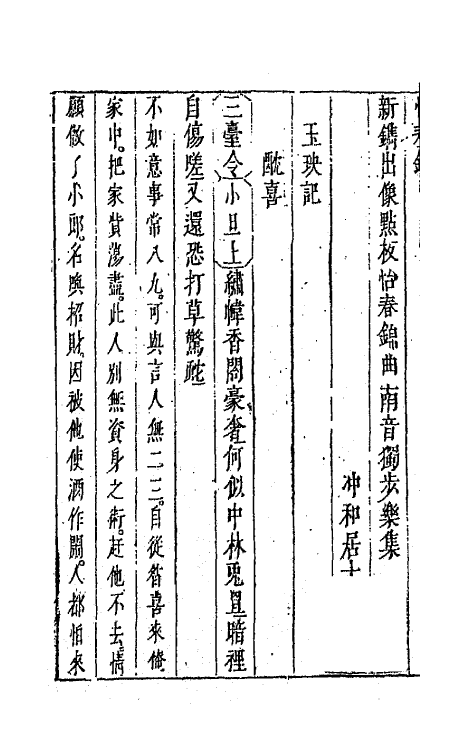 新鐫出像點板怡春錦曲南音獨步樂集
冲和居士
玉玦記
酖喜
三臺令 小旦上 繡幃香閣豪奢何似中林兎罝暗裡
自傷嗟又還恐打草驚蛇
不如意事常八九。可與言人無二三。自從昝喜來俺
家中。把家貲蕩盡。此人別無資身之術。赶他不去。情
願做了小郎。名喚招財。因被他使酒作鬧。人都怕來